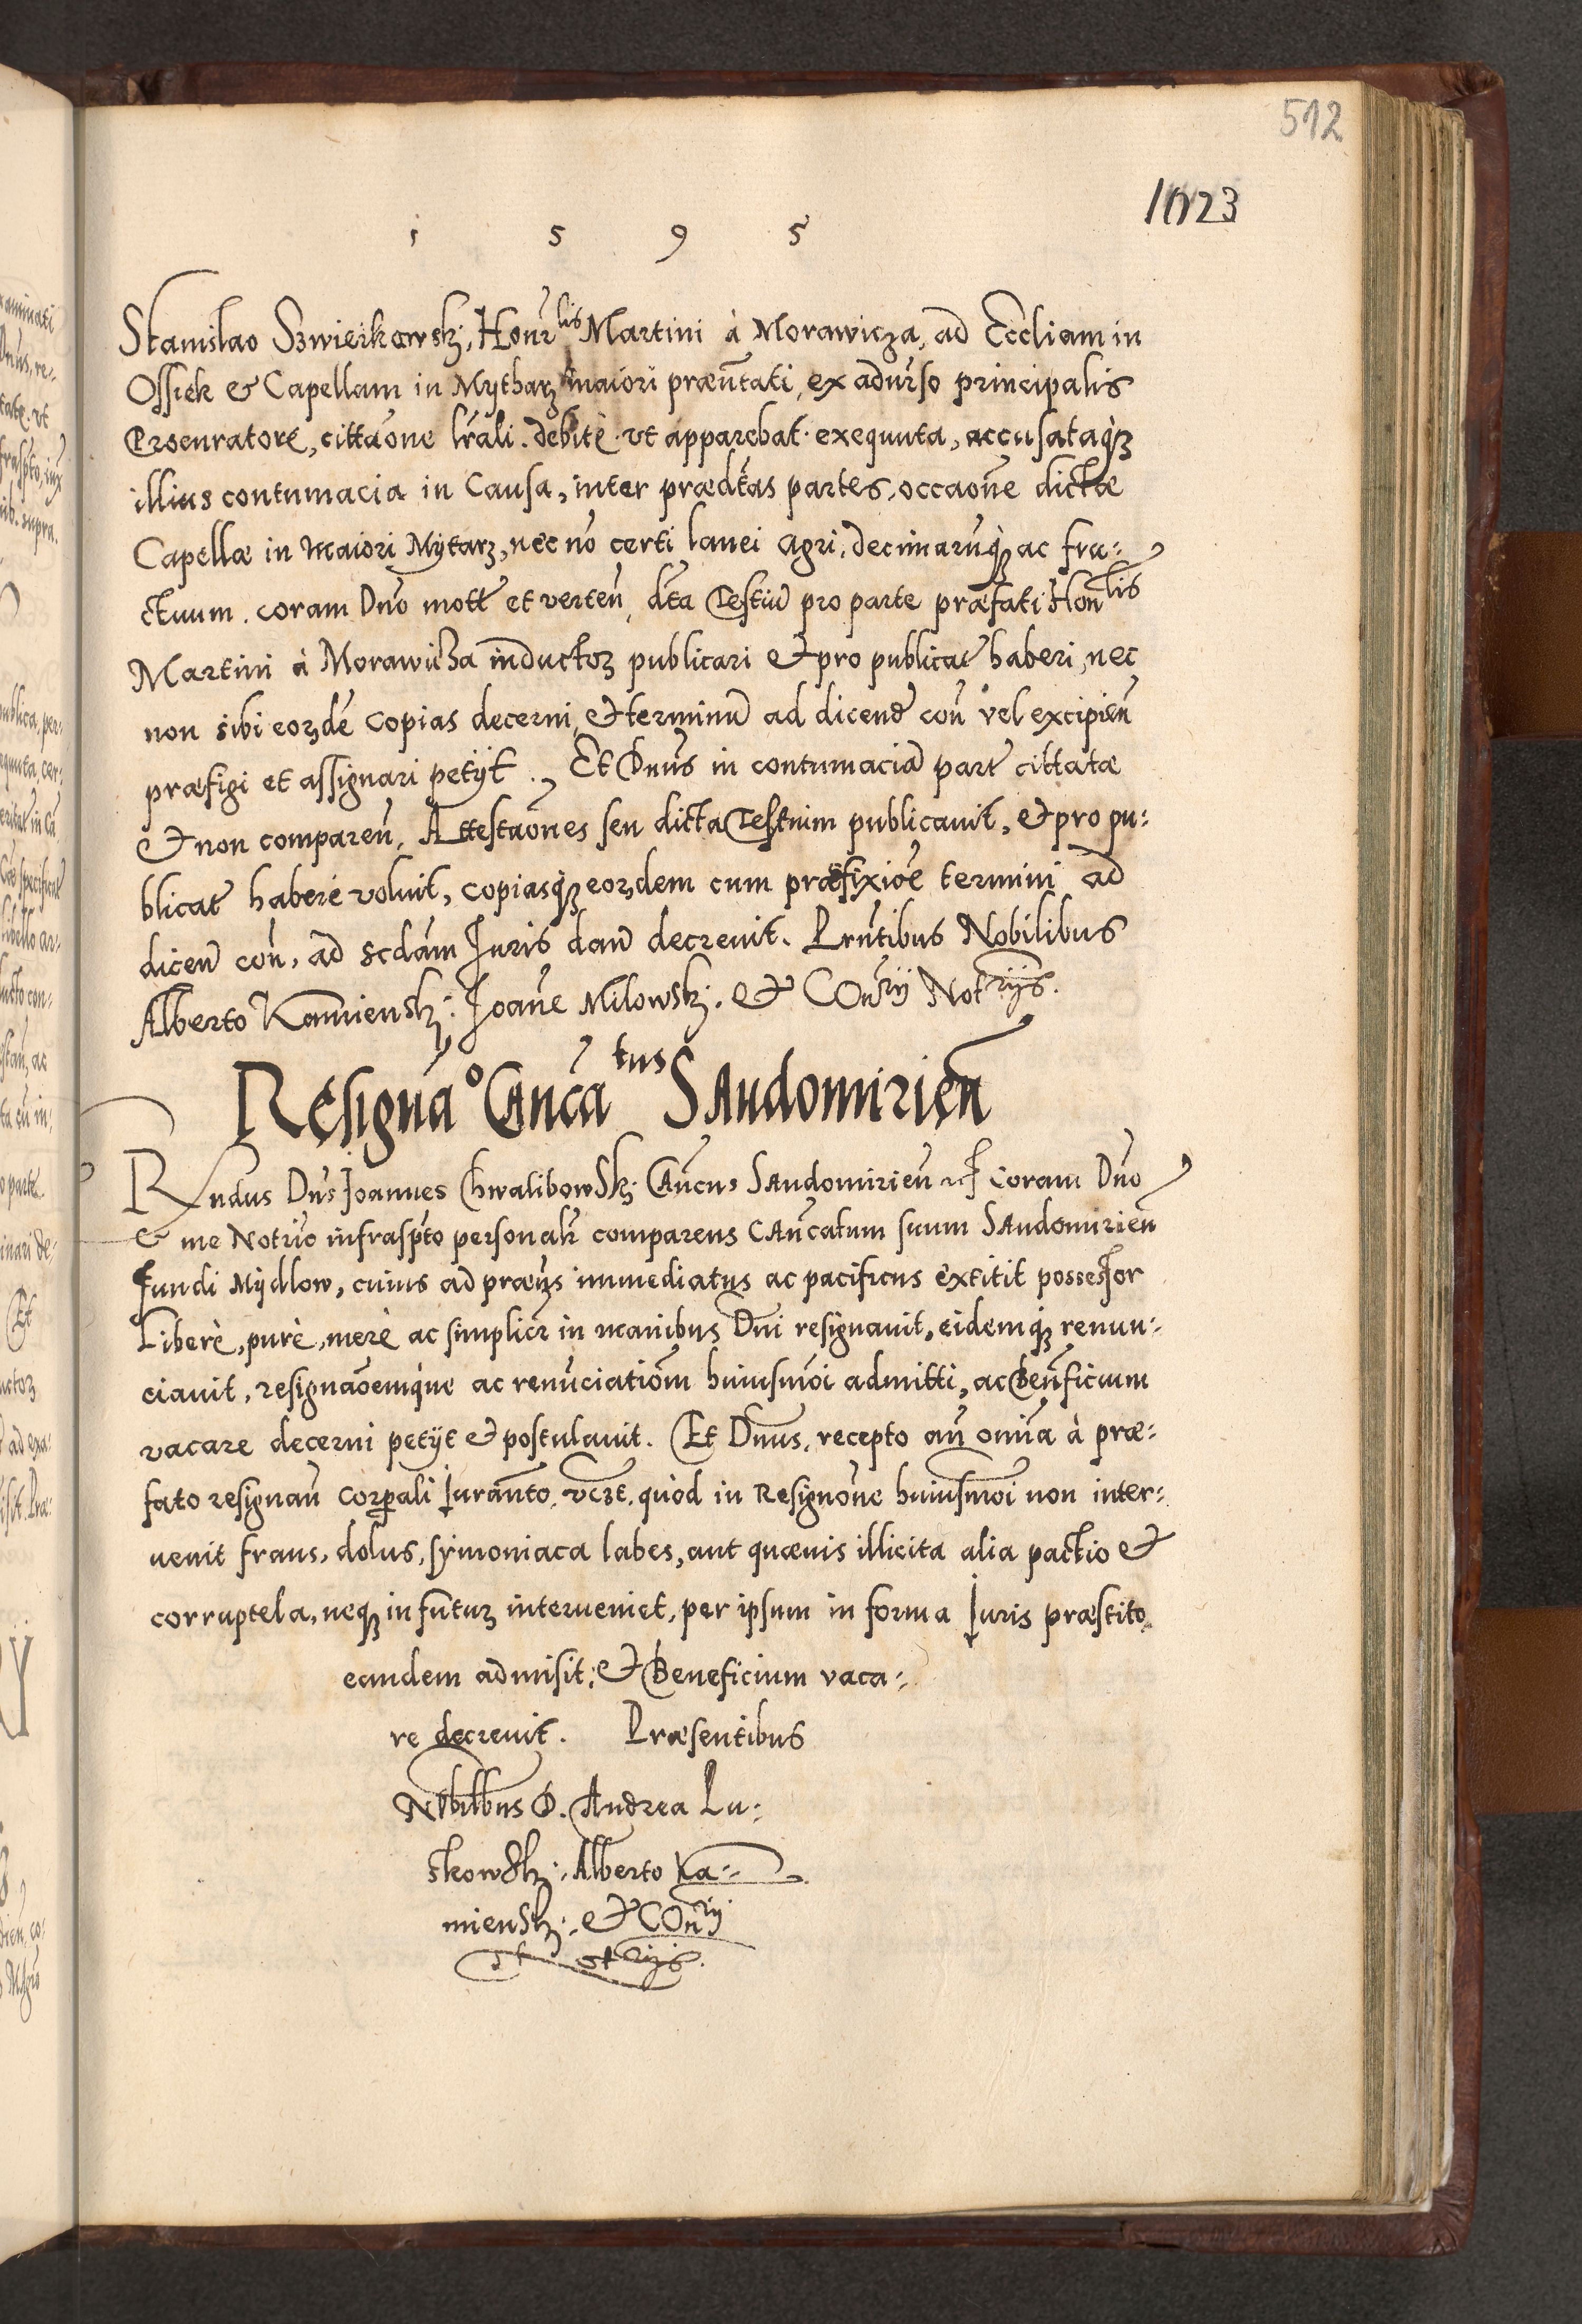 512
1023
1 5 9 5
Stanislao Szwierkowskj, Honr̃lis Martini à Morawicza, ad Eccliam in
Ossiek & Capellam in Mytharz maiori præñtati, ex aduŕso principalis
Procuratore, cittãone lrãli debitè vt apparebat exequuta, accusataq́ȝ
illius contumacia in Causa, inter prædt́as partes, occãone dictæ
Capellæ in Maiori Mytarz, nec nõ certi lanei agri, decimarũq́ȝ ac fru-
ctuum coram Dño mott et verteñ, dt́a Testiũ pro parte præfati Honlis
Martini à Morawicza inductoȝ publicari & pro publicat haberi, nec
non sibi eorȝdẽ copias decerni, & terminũ ad dicend coñ vel excipieñ
præfigi et assignari petÿt. Et Dnũs in contumaciã part cittatæ
& non compareñ, Attestãones seu dicta Testium publicauit, & pro pu-
blicat haberi voluit, copiasq́ȝ eorȝdem cum præfixiõe termini ad
diceñ coñ, ad scdãm Iuris dañ decreuit. Prñtibus Nobilibus
Alberto Kamienskj, Joañe Milowskj, & COñrÿ Notrÿs.
Resignaõ Cañcatus SAndomirieñ
Rndus Dñs Joannes ChwalibowSkj Cañcus SAndomirieñ coram Dño
& me Notrio infraspt́o personalr comparens CAñcatum suum SAndomirieñ
fundi Mydlow, cuius ad præñs immediatus ac pacificus extitit possessor
Liberè, purè, merè ac simplicr in manibus Dñi resignauit, eidemq́ȝ renun-
ciauit, resignãoemq́ue ac renũciatiõm huiusmõi admitti, ac Beñficium
vacare decerni petÿt & postulauit. Et Dñus, recepto añ omĩa à præ-
fato resignañ corpãli Iurãnto, vczt, quòd in Resignõne huiusmõi non inter-
uenit fraus, dolus, sÿmoniaca labes, aut quæuis illicita alia pactio &
corruptela, neqȝ in futurȝ interueniet, per ipsum in forma Iuris præstito
eandem admisit, & Beneficium vaca-
re decreuit. Præsentibus
Nobilibus D. Andrea Lu-
tkowSkj, Alberto Ka-
mienSkj, & COñrÿ
Notrÿs.